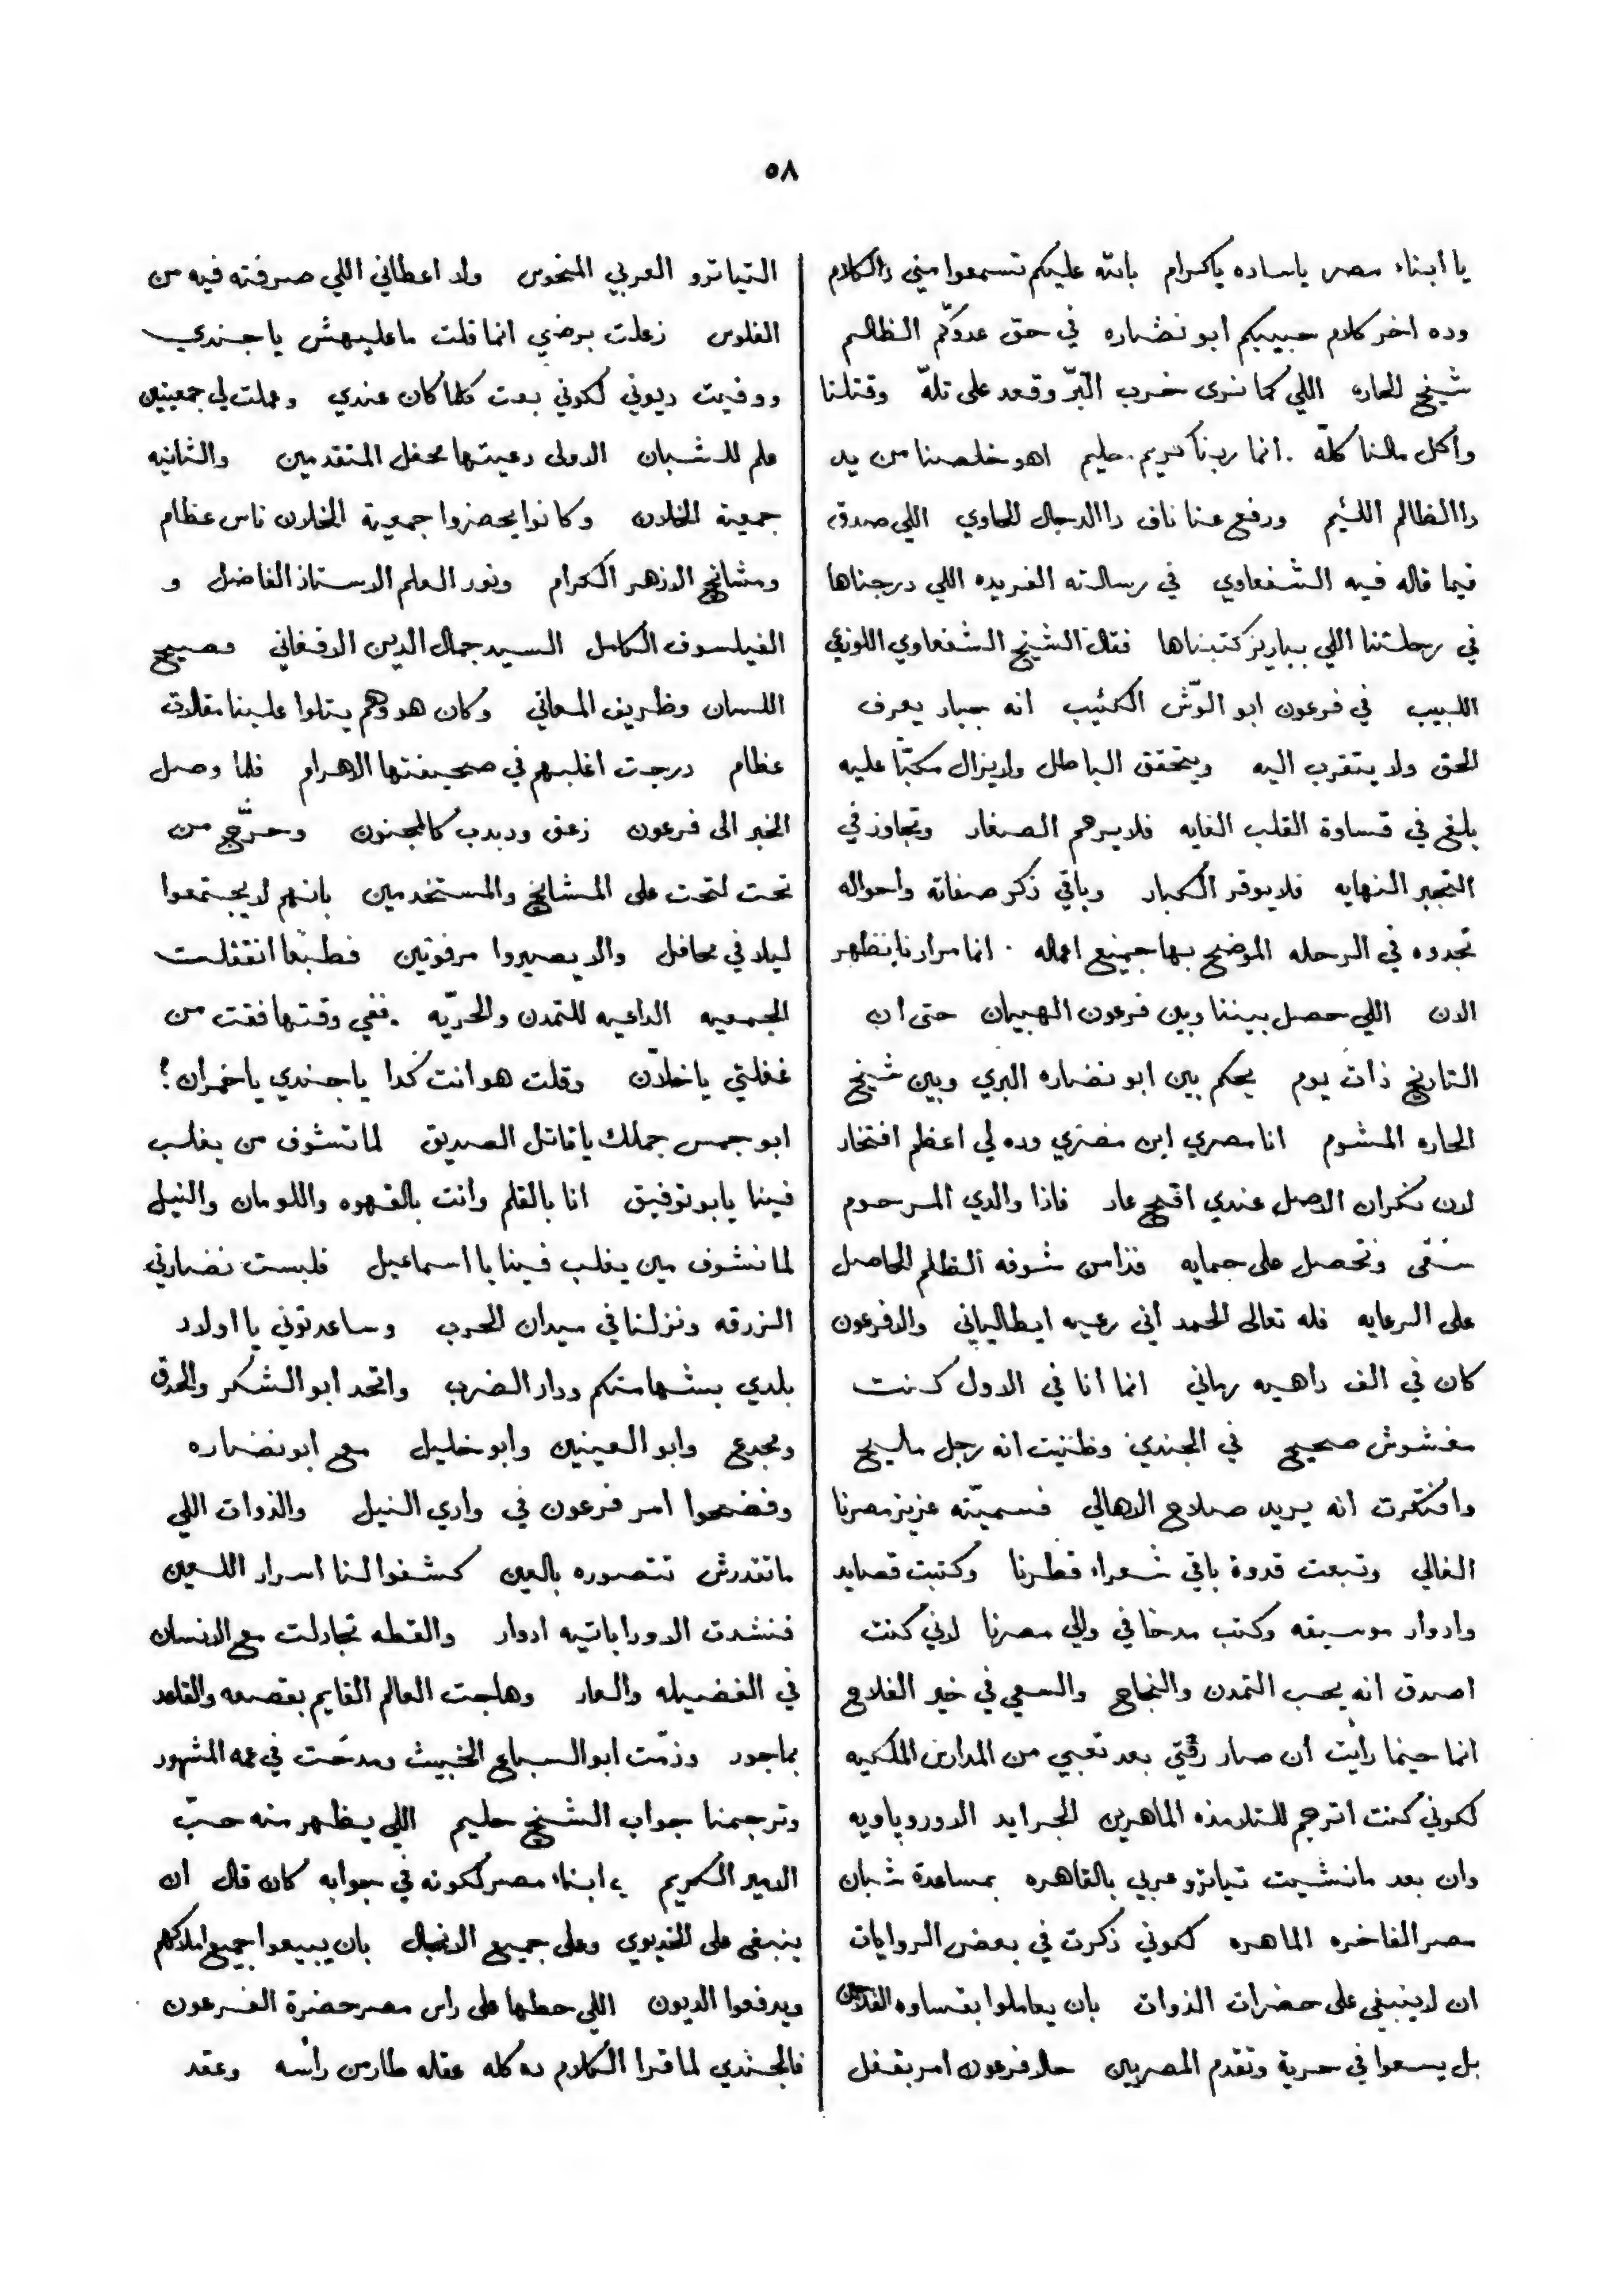 ٥٨
يا ابناء مصر ياساده ياكرام بالله عليكم تسمعوا مني دالكلام
وده اخر كلام حبيبكم ابو نضاره في حق عدوّكم الظالم
شيخ الحاره اللي كما نرى خرب البرّ وقعد على تلّه وقتلنا
واكل مالنا كلّه . انما ربنا كريم حليم اهو خلصنا من يد
دا الظالم اللئيم ورفع عنا ناف دا الدجال الحاوي اللي صدق
فيما قاله فيه الشفعاوي في رسالته الفريده اللي درجناها
في رحلتنا اللي بباريز كتبناها فقال الشيخ الشفعاوي اللوزعي
اللبيب في فرعون ابو الوّش الكئيب انه جبار يعرف
الحق ولا يتقرب اليه ويتحقق الباطل ولا يزال مكبّا عليه
بلغ في قساوة القلب الغايه فلا يرحم الصغار وتجاوز في
التجبر النهايه فلا يوقر الكبار وباقي ذكر صفاته واحواله
تجدوه في الرحله الموضح بها جميع اعماله . انما مرادنا نظهر
الان اللي حصل بيننا وبين فرعون الهبيان حتى ان
التاريخ ذات يوم يحكم بين ابو نضاره البري وبين شيخ
الحاره المشوم انا مصري ابن مصري وده لي اعظم افتخار
لان نكران الاصل عندي اقبح عار فاذا والدي المرحوم
سقى وتحصل على حمايه فذا من شوفه الظلم الحاصل
على الرعايه فله تعالى الحمد أني رعيه ايطالياني والا فرعون
كان في الف داهيه رماني انما انا في الاول كنت
مغشوش صحيح في الجندي وظنيت انه رجل مليح
وافتكرت انه يريد صلاح الاهالي فسميّته عزيز مصرنا
الغالي وتبعت قدوة باقي شعراء قطرنا وكتبت قصايد
وادوار موسيقه وكتب مدحا في والي مصرنا لاني كنت
اصدق انه يحب التمدن والنجاح والسعي في خير الفلاح
انما حينما رأيت أن صار رفتي بعد تعبي من المدارس الملكيه
لكوني كنت اترجم للتلامذه الماهرين الجرايد الاوروباويه
وان بعد مانشيت تياترو عربي بالقاهره بمساعدة شبان
مصر الفاخره الماهره لكوني ذكرت في بعض الروايات
ان لا ينبغي على حضرات الذوات بان يعاملوا بقساوه الفلاحين
بل يسعوا في حرية وتقدم المصريين حلا فرعون امر بقفل
التياترو العربي المنحوس ولا اعطاني اللي صرفته فيه من
الفلوس زعلت برضي انما قلت ماعليهش ياجندي
ووفيت ديوني لكوني بعت كلما كان عندي وعملت لي جمعيتين
علم للشبان الاولى دعيتها محفل المتقدمين والثانيه
جمعية الخلان وكانوا يحضروا جمعية الخلان ناس عظام
ومشائخ الازهر الكرام ونور العلم الاستاذ الفاضل و
الفيلسوف الكامل السيد جمال الدين الافغاني فصيح
اللسان وظريف المعاني وكان هو وهم يتلوا علينا مقالات
عظام درجت اغلبهم في صحيفتها الاهرام فلما وصل
الخبر الى فرعون زعق ودبدب كالمجنون وحرّج من
تحت لتحت على المشايخ والمستخدمين بانهم لا يجتمعوا
ليلا في محافل والا يصيروا مرفوتين فطبعا انقفلت
الجمعيه الداعيه للتمدن والحريّه . ففي وقتها فقت من
غفلتي ياخلّان وقلت هو انت كدا ياجندي ياخمران ؟
ابو جمس جملك يا قاتل الصديق لما نشوف من يغلب
فينا يابو توفيق انا بالقلم وانت بالقهوه واللومان والنيل
لما نشوف مين يغلب فينا يا اسماعيل فلبست نضارتي
الزرقه ونزلنا في ميدان الحرب وساعدتوني يا اولاد
بلدي بشهامتكم ودار الضرب واتحد ابو الشكر والحدق
ومجدع وابو العينين وابو خليل مع ابو نضاره
وفضحوا امر فرعون في وادي النيل والذوات اللي
ماتقدرش تتصوره بالعين كشفوا لنا اسرار اللعين
فنشدت الاوراباتيه ادوار والقطه تجادلت مع الانسان
في الفضيله والعار وهاجت العالم القايم بقصعه والقاعد
بماجور وذمّت ابو السباع الخبيث ومدحت في عمه المشهور
وترجمنا جواب الشيخ حليم اللي يظهر منه حبّ
الامير الكريم ابناء مصر لكونه في جوابه كان قال ان
ينبغي على الخديوي وعلى جميع الانجال بان يبيعوا جميع املاكهم
ويدفعوا الديون اللي حطها على راس مصر حضرة الفرعون
فالجندي لما قرا الكلام ده كله عقله طار من رأسه وعقد